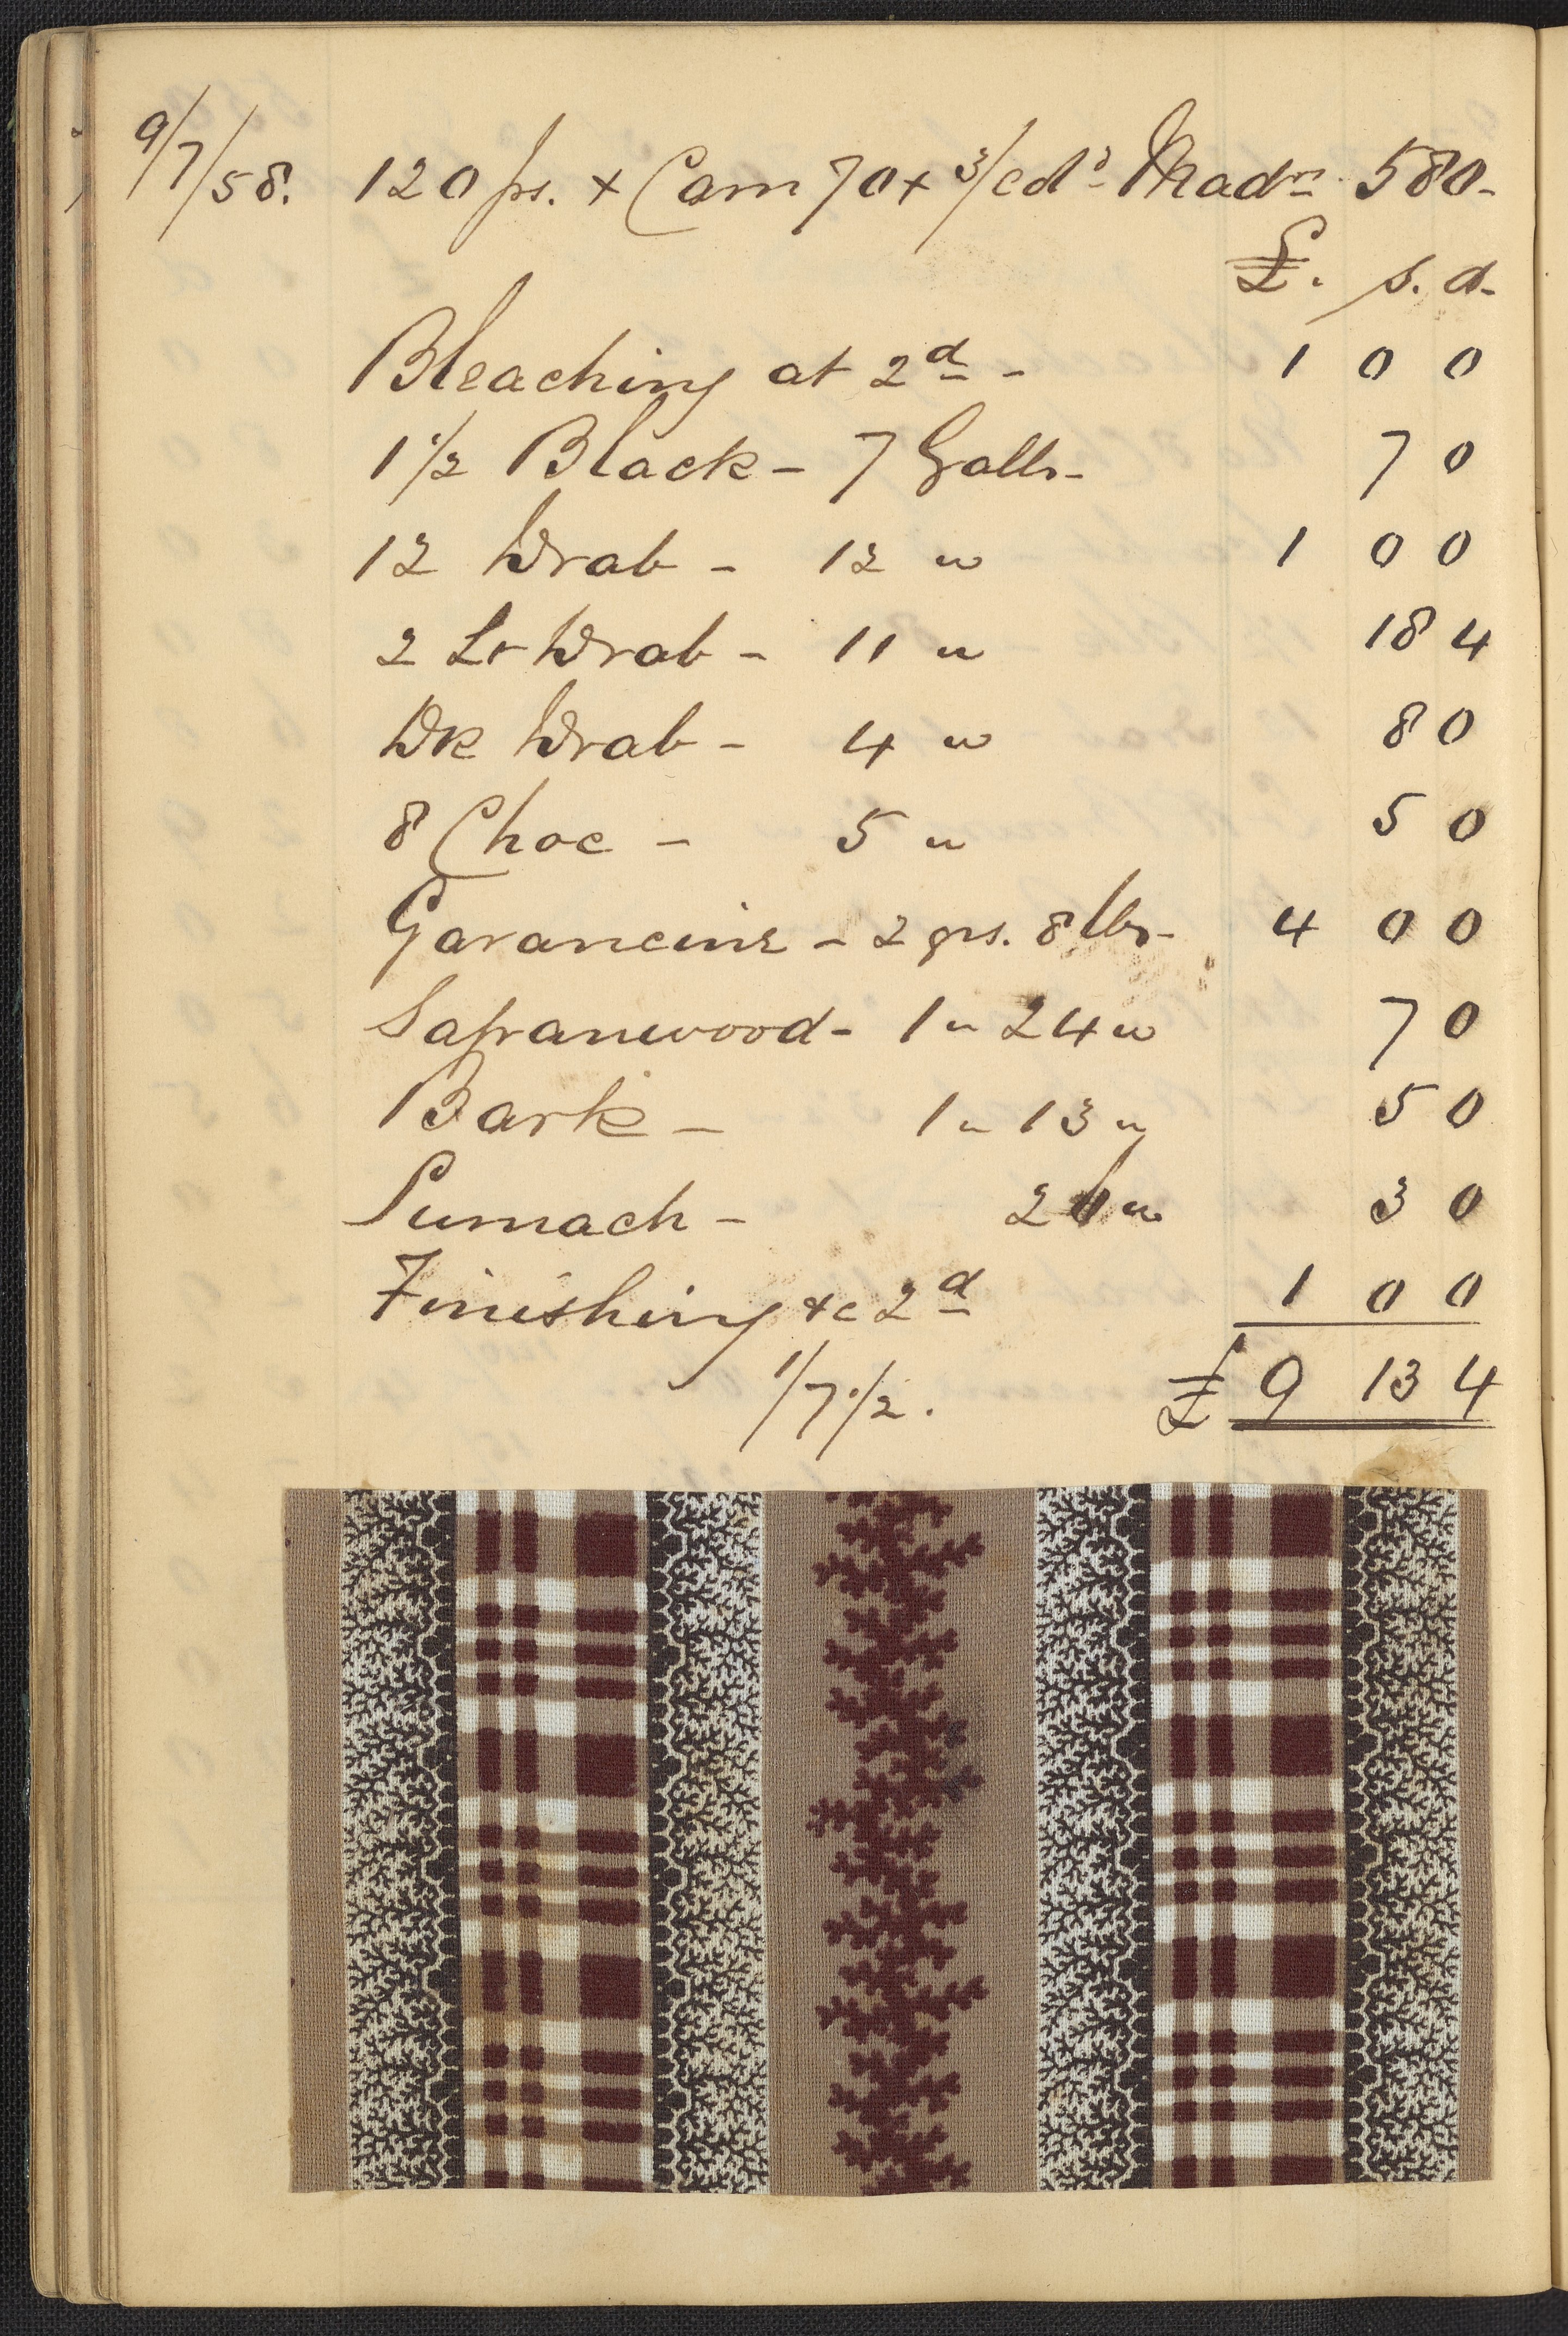 9/7/58. 120 ps. + Cam 70 + 3/cd^s Mad^n. 580-
£. s. d-
Bleaching at 2^d - 1 0 0
1 1/2 Black - 7 Galls- 7 0
12 Drab - 12 " 1 0 0
2 Lt Drab - 11 " 18 4
Dk Drab - 4 " 8 0
8 Choc - 5 " 5 0
Garancine - 2 qrs. 8 lbs- 4 0 0
Sapanwood - 1 " 24 " 7 0
Bark - 1 " 13 " 5 0
Sumach - " 3 0
Finishing &c 2^d 1 0 0
1/7 1/2. £ 9 13 4